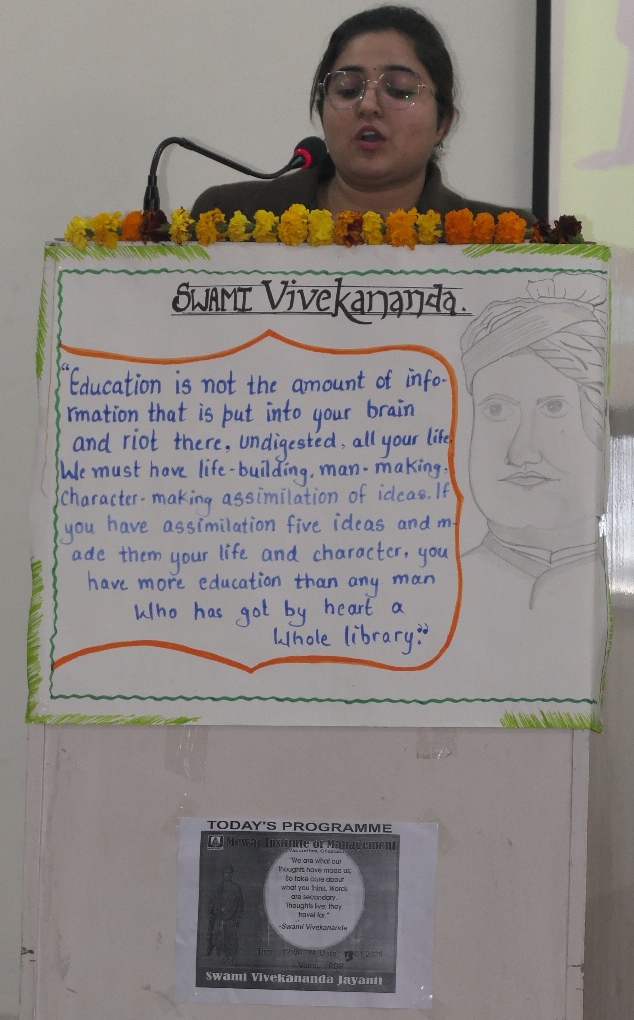 SWAMI Vivekananda.
"Education is not the amount of info-
rmation that is put into your brain
and riot there, undigested, all your life.
We must have life-building, man-making,
character-making assimilation of ideas. If
you have assimilation five ideas and m-
ade them your life and character, you
have more education than any man
Who has got by heart a
Whole library."
TODAY'S PROGRAMME
Mewar Institute of Management
"We are what our
thoughts have made us;
So take care about
what you think. Words
are secondary.
Thoughts live; they
travel far."
-Swami Vivekananda
Swami Vivekananda Jayanti